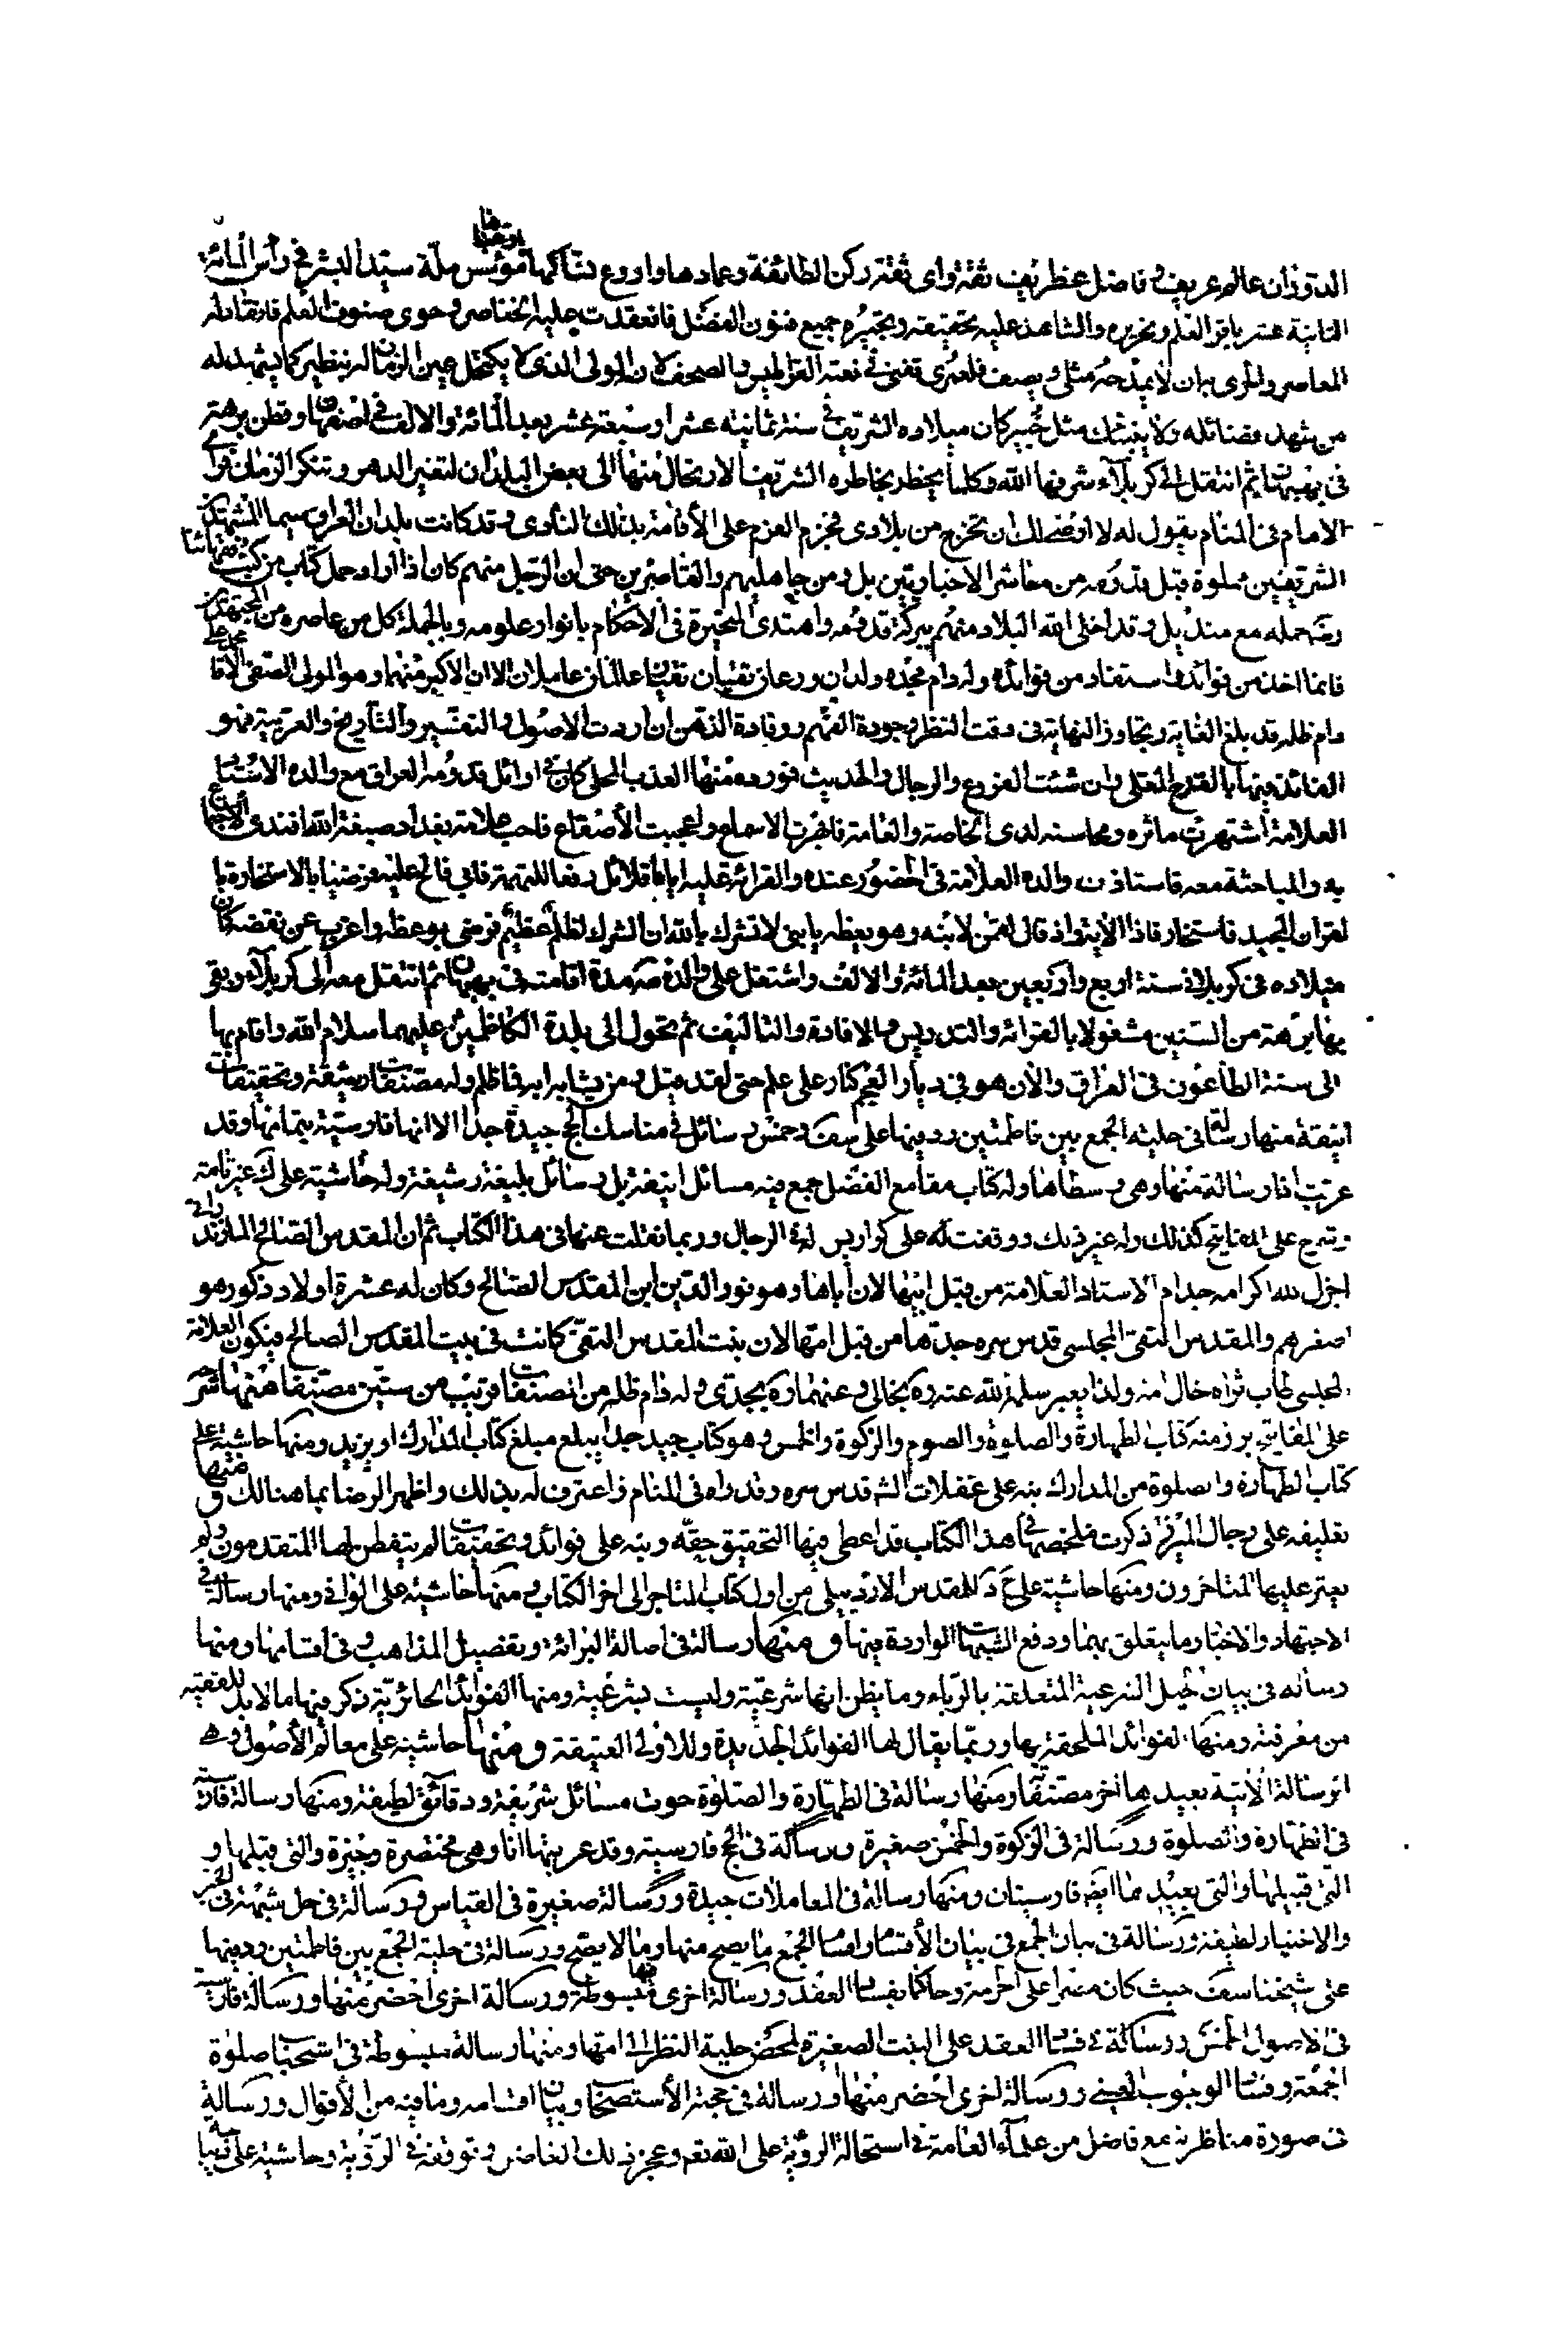 الدوران عالم عريف وفاضل غطريف ثقة واى ثقة ركن الطائفة وعمادها واورع نساكها مؤسس ملة سيد البشر فى رأس المائة
الثانية عشر باقر العلم ونحريره والشاهد عليه تحقيقه وتحبيره جمع فنون الفضل فانعقدت عليه الخناصر وحوى صنوف العلم فانقاد له
المعاصر والحرى به ان لا يمدحه مثلى ويصف فلعمرى تفنى فى نعته القراطيس والصحف لانه المولى الذى لا يكتحل عين الزمان له بنظير كما يشهد له
من شهد فضائله ولا ينبئك مثل خبير كان ميلاده الشريف فى سنة ثمانية عشر او سبعة عشر بعد المائة والالف فى اصفهان وقطن برهة
فى بهبهان ثم انتقل الى كربلاء شرفها الله وكلما يخطر بخاطره الشريف الارتحال منها الى بعض البلدان لتغير الدهر وتنكر الزمان فرأى
الامام فى المنام يقول له لا ارضى لك ان تخرج من بلادى فجزم العزم على الاقامة بذلك النادى وقد كانت بلدان العراق سيما المشهدين
الشريفين مملوة قبل قدومه من معاشر الاخباريين بل ومن جاهليهم والقاصرين حتى ان الرجل منهم كان اذا اراد حمل كتاب من كتب فقهائنا
رضه حمله مع منديل وقد اخلى الله البلاد منهم ببركة قدومه واهتدى المتحيرة فى الاحكام بانوار علومه وبالجملة كل من عاصره من المجتهدين
فانما اخذ من فوائده واستفاد من فوائده وله دام مجده ولدان ورعان تقيان نقيان عالمان عاملان الا ان الاكبر منهما وهو المولى الصفى الاقا محمد على
دام ظله قد بلغ الغاية وتجاوز النهاية فى دقة النظر وجودة الفهم ووقادة الذهن ان اردت الاصول والتفسير والتاريخ والعربية فهو
الفائز فيها بالقدح المعلى وان شئت الفروع والرجال والحديث فورده منها العذب المحلى كان فى اوائل قدومه العراق مع والده الاستاد
العلامة اشتهرت ماثره ومحاسنه لدى الخاصة والعامة فابهرت الاسماع واعجبت الاصقاع فاحب علامة بغداد صبغة الله افندى الاجتماع
به والمباحثة معه فاستاذن والده العلامة فى الحضور عنده والقرائة عليه اياما قلائل دفعا للتهمة فابى فالح عليه فرضيا بالاستخارة با
لقران المجيد فاستخار فاذا الاية واذ قال لقمن لابنه وهو يعظه يا بنى لا تشرك بالله ان الشرك لظلم عظيم فرضى بوعظه واعرب عن نقضه كان
ميلاده فى كربلا فى سنة اربع واربعين بعد المائة والالف واشتغل على والده مدة اقامته فى بهبهان ثم انتقل معه الى كربلاء وبقى
بها برهة من السنين مشغولا بالقرائة والتدريس والافادة والتاليف ثم تحول الى بلدة الكاظمين عليهما سلام الله واقام بها
الى سنة الطاعون فى العراق والان هو فى ديار العجم كنار على علم حتى لقد قيل ومن يشابه ابه فما ظلم وله مصنفات رشيقة وتحقيقات
انيقة منها رسالة فى حلية الجمع بين فاطميتين رد فيها على سف وخمس رسائل فى مناسك الحج جيدة جدا الا انها فارسية بتمامها وقد
عربت انا رسالة منها وهى وسطاها وله كتاب مقامع الفضل جمع فيه مسائل انيقة بل رسائل بليغة رشيقة وله حاشية على لك غير تامة
وشرح على المفاتيح كذلك وله غير ذلك ووقفت له على كراريس له فى الرجال وربما نقلت عنها فى هذا الكتاب ثم ان المقدس الصالح المازندرانى
اجزل الله اكرامه جد ام الاستاد العلامة من قبل ابيها لان اباها وهو نور الدين ابن المقدس الصالح وكان له عشرة اولاد ذكور هو
اصغرهم والمقدس التقى المجلسى قدس سره جدها من قبل امها لان بنت المقدس التقى كانت فى بيت المقدس الصالح فيكون العلامة
المجلسى طاب ثراه خال امه ولذا يعبر سلمه الله عنه ره بخالى وعنهما ره بجدى وله دام ظله من المصنفات قريب من ستين مصنفا منها شرحه
على المفاتيح برز منه كتاب الطهارة والصلوة والصوم والزكوة والخمس وهو كتاب جيد جدا يبلغ مبلغ كتاب المدارك او يزيد ومنها حاشية على
كتاب الطهارة والصلوة من المدارك نبه على غفلات الشه قدس سره وقد راه فى المنام واعترف له بذلك واظهر الرضا بما هنالك ومنها
تعليقه على رجال الميرزا ذكرت ملخصها فى هذا الكتاب قد اعطى فيها التحقيق حقه ونبه على فوائد وتحقيقات لم يتفطن لها المتقدمون ولم
يعثر عليها المتاخرون ومنها حاشية على ح د للمقدس الاردبيلى من اول كتاب المتاجر الى اخر الكتاب ومنها حاشية على الوافى ومنها رسالة فى
الاجتهاد والاخبار وما يتعلق بهما ودفع الشبهات الواردة فيها ومنها رسالة فى اصالة البرائة وتفصيل المذاهب فى اقسامها ومنها
رسالة فى بيان الحيل الشرعية المتعلقة بالرباء وما يظن انها شرعية وليست بشرعية ومنها الفوائد الحائرية ذكر فيها ما لا بد للفقيه
من معرفته ومنها الفوائد الملحقة بها وربما يقال لها الفوائد الجديدة وللاولى العتيقة ومنها حاشية على معالم الاصول وهى
الرسالة الاتية بعيد هما اخر مصنفاته ومنها رسالة فى الطهارة والصلوة حوت مسائل شريفة ودقائق لطيفة ومنها رسالة فارسية
فى الطهارة والصلوة ورسالة فى الزكوة والخمس صغيرة ورسالة فى الحج فارسية وقد عربتها انا وهى مختصرة وجيزة والتى قبلها و
التى قبيلها والتى بعيدهما ايضه فارسيتان ومنها رسالة فى المعاملات جيدة ورسالة صغيرة فى القياس ورسالة فى حل شبهة فى الجبر
والاختيار لطيفة ورسالة فى بيان الجمع فى بيان الاقسام واقسام الجمع ما يصح منها وما لا يصح ورسالة فى حلية الجمع بين فاطميتين رد فيها
على شيخنا سف حيث كان مصرا على الحرمة وحاكما بفساد العقد ورسالة اخرى فيها مبسوطة ورسالة اخرى اخصر منها ورسالة فارسية
فى الاصول الخمس ورسالة فى فساد العقد على البنت الصغيرة لمحض حلية النظر الى امها ومنها رسالة مبسوطة فى استحباب صلوة
الجمعة وفساد الوجوب العينى ورسالة اخرى اخصر منها ورسالة فى حجية الاستصحاب وبيان اقسامه وما فيه من الاقوال ورسالة
فى صورة مناظرته مع فاضل من علماء العامة فى استحالة الرؤية على الله تعم وعجز ذلك الفاضل وتوقفه فى الرؤية وحاشية على ديباجة